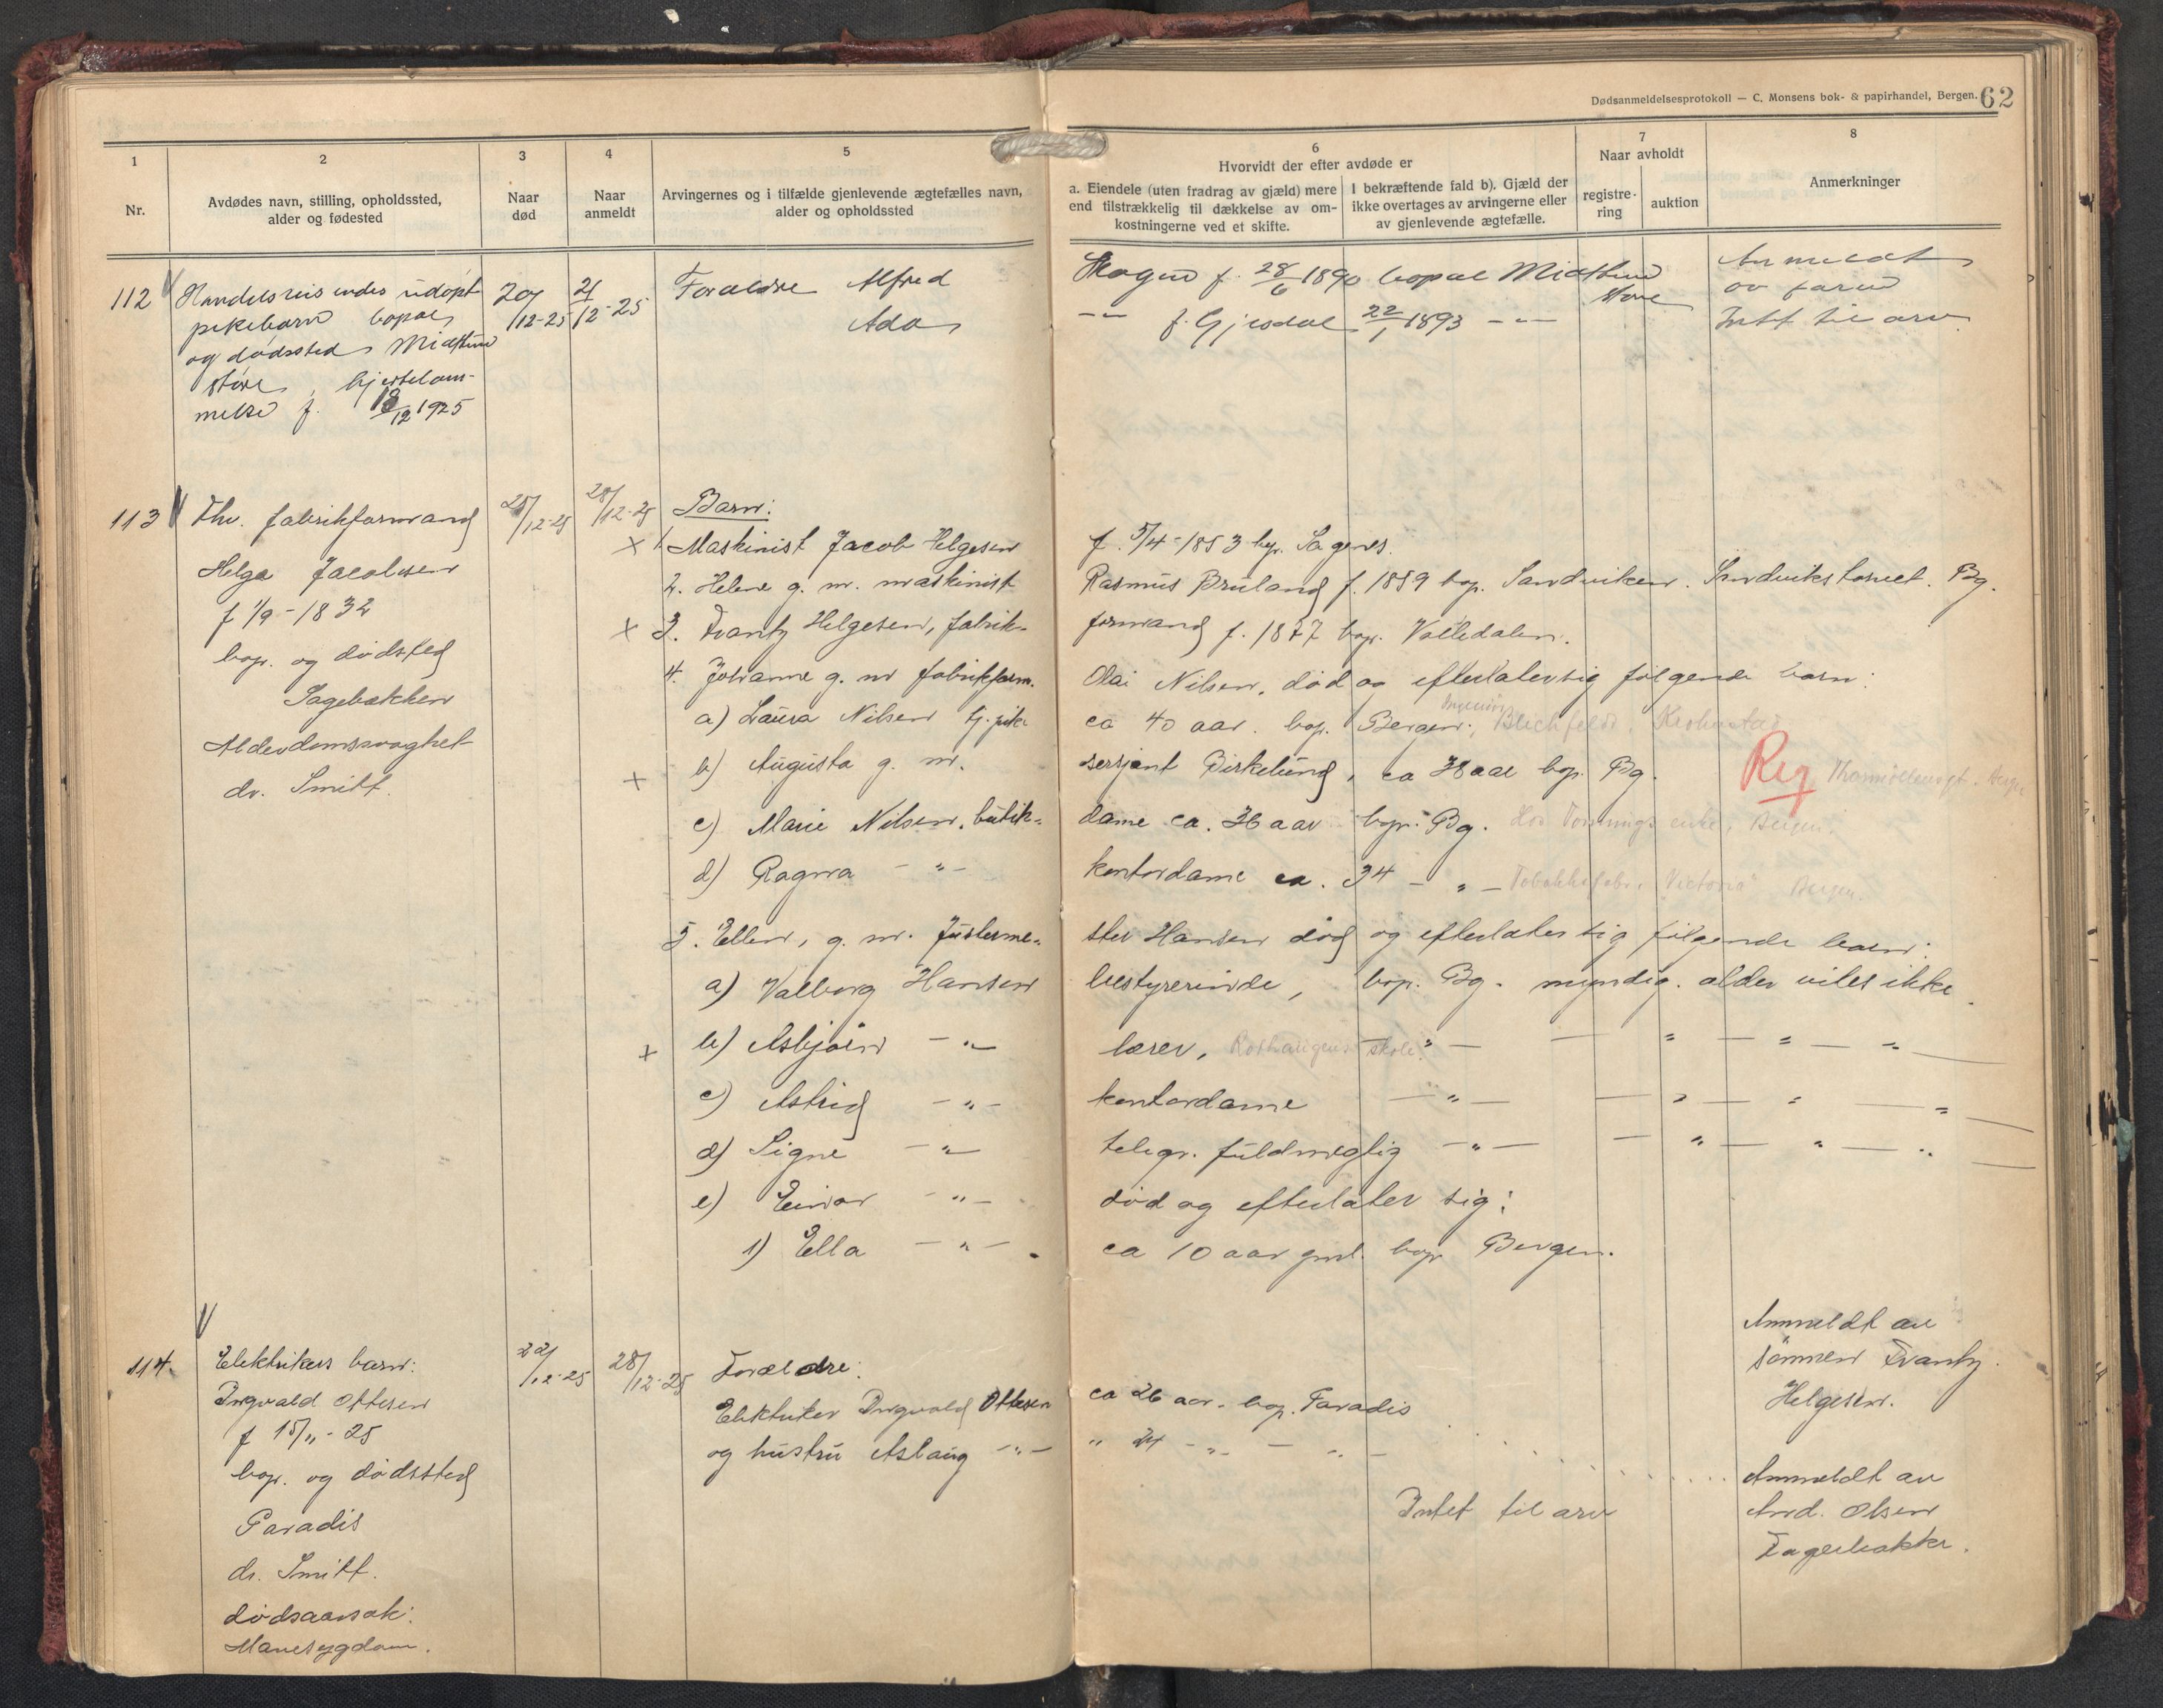 Dødsanmeldelsesprotokoll — C. Monsens bok- & papirhandel, Bergen. 62
1 2 3 4 5 6 7 8
Nr.
Avdødes navn, stilling, opholdssted,
alder og fødested
Naar
død
Naar
anmeldt
Arvingernes og i tilfælde gjenlevende ægtefælles navn,
alder og opholdssted
Hvorvidt der efter avdøde er
a. Eiendele (uten fradrag av gjæld) mere
end tilstrækkelig til dækkelse av om-
kostningerne ved et skifte.
I bekræftende fald b). Gjæld der
ikke overtages av arvingerne eller
av gjenlevende ægtefælle.
Naar avholdt
registre-
ring
auktion
Anmerkninger
112 Handelsreisendes udøpt 20/12-25 21/12-25 Forældre Alfred f. 28/6 1890 bopæl Midttun Anmeldt
pikebarn bopæl Ada -"- f. Gjesdal 22/1 1893 -"- av faren
og dødssted Midttun Intet til arv
støre, hjertelam-
melse f. 18/12 1925
113 Fhv. fabrikformand 25/12-25 28/12-25 Barn:
x 1. Maskinist Jacob Helgesen f. 5/4-1853 bop. Sagenes.
Helge Jacobsen
2. Helene g. m. maskinist Rasmus Bruland f. 1859 bop. Sandviken. Sandvikstorvet. Bg.
f 1/9-1832
x 3. Frantz Helgesen, fabrik- formand f. 1877 bop.
bop. og dødsted
4. Johanne g. m fabrikform. Olai Nilsen, død og efterlater sig følgende barn:
Sagebakken
a) Laura Nilsen tj. pike ca 40 aar. bop. Bergen; Ingeniør Blichfeldt, Kronstad
Alderdomssvaghet
x b) Augusta g. m. sersjant Birkelund, ca 38 aar bop. Bg. Reg
dr. Smitt.
c) Marie Nilsen, butik- dame ca. 36 aar bop. Bg. Hos enke, Bergen.
d) Ragna -"- kontordame ca. 34 -"- Tobakksfabr. Victoria Bergen.
5. Ellen, g. m. Justerme- ster Hansen død og efterlater sig følgende barn:
a) Valborg Hansen bestyrerinde, bop. Bg. myndig. alder vites ikke
x b) Asbjørn -"- lærer, Rothaugens skole -"- - " - " - "
c) Astrid -"- kontordame -"- - " - " - "
d) Signe -"- telegr. fuldmegtig -"- - " - " - "
e) Einar -"- død og efterlater sig:
1) Ella -"- ca 10 aar gml. bop Bergen.
Anmeldt av
sønnen Frantz
Helgesen.
114. Elektrikers barn: 22/12-25 28/12-25 Forældre:
Ingvald Ottesen Elektriker Ingvald Ottesen ca 26 aar. bop. Paradis
f 15/11-25 og hustru Aslaug -"- " 24 -"- -"-
bop. og dødssted Anmeldt av
Paradis Intet til arv And. Olsen
dr. Smitt. Fagerbakke.
dødsaarsak:
Mavesygdom.